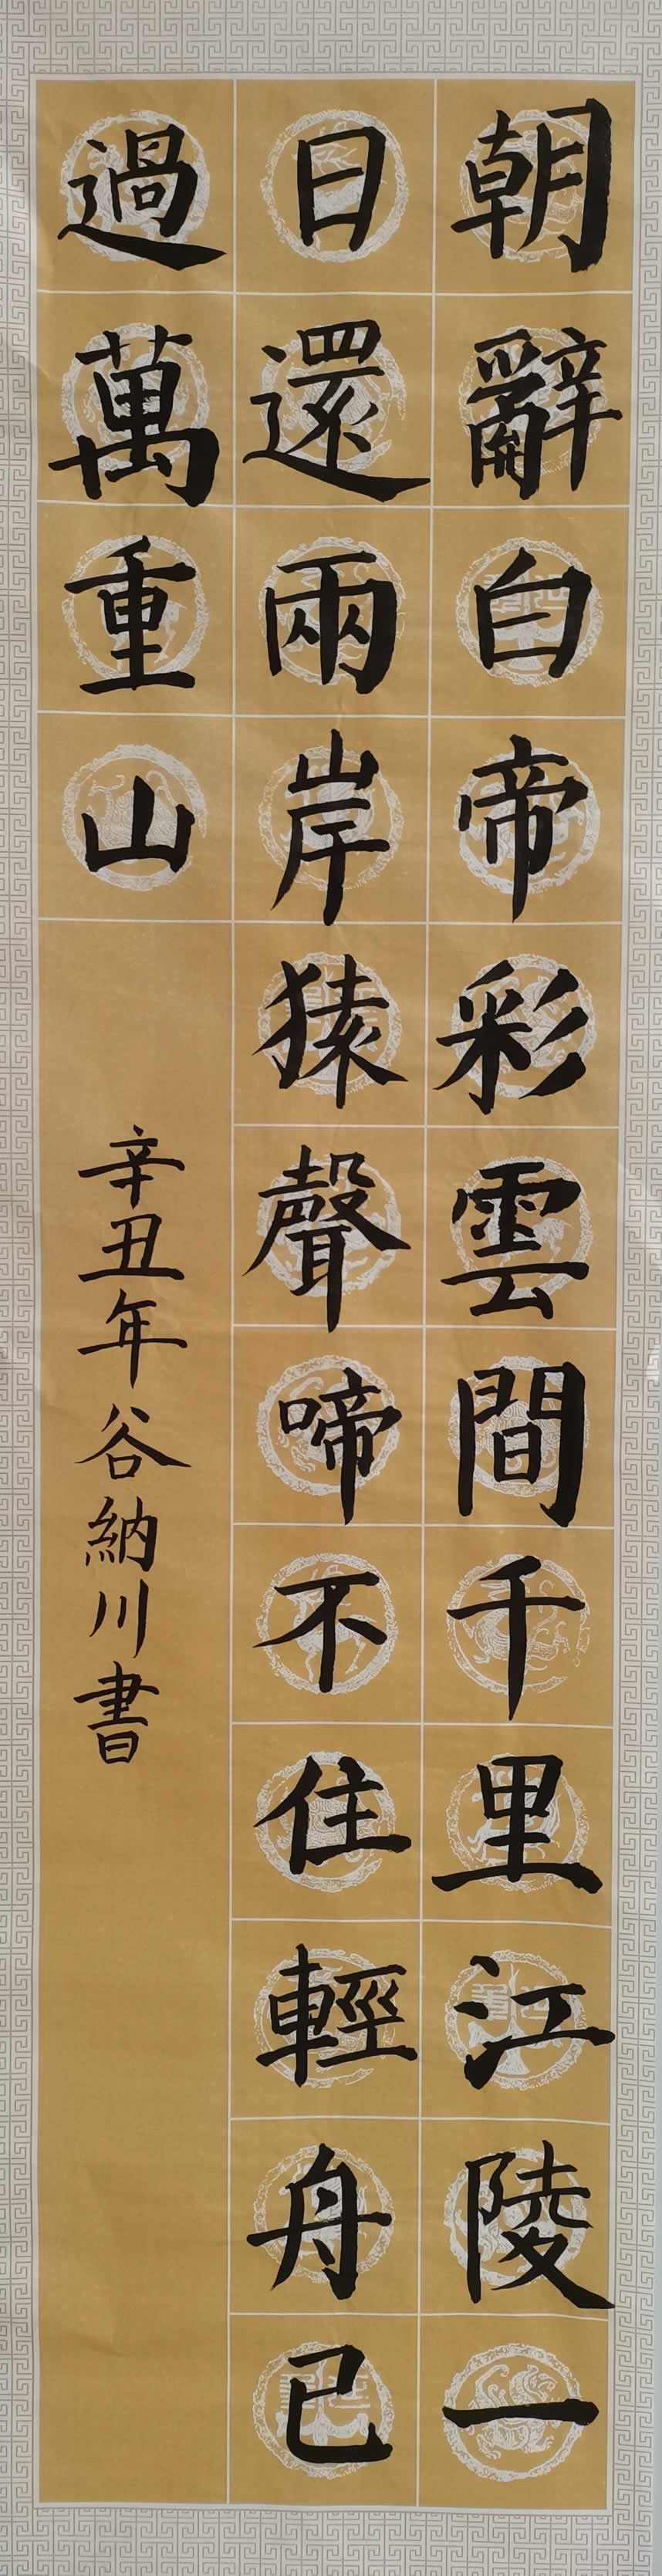 朝辭白帝彩雲間千里江陵一
日還兩岸猿聲啼不住輕舟已
過萬重山
辛丑年谷納川書